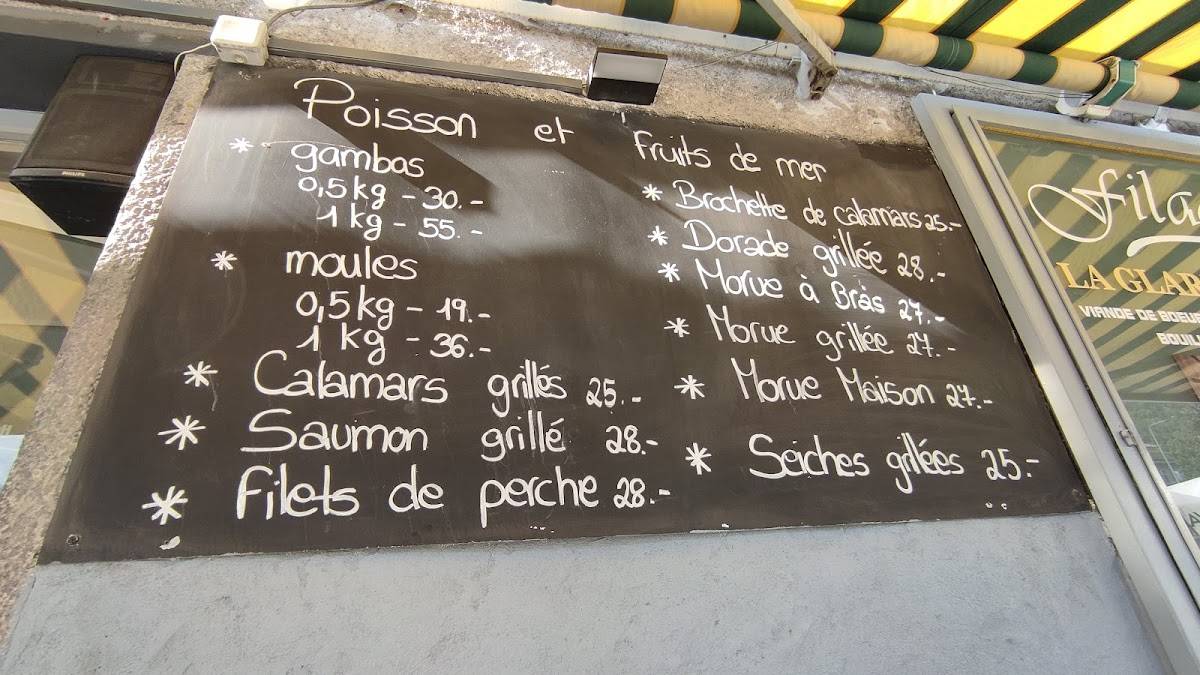 Poisson et fruits de mer
* gambas
0,5 kg - 30.-
1 kg - 55.-
* moules
0,5 kg - 19.-
1 kg - 36.-
* Calamars grillés 25.-
* Saumon grillé 28.-
* Filets de perche 28.-
* Brochette de calamars 25.-
* Dorade grillée 28.-
* Morue à Bràs 27.-
* Morue grillée 27.-
* Morue Maison 27.-
* Seiches grillées 25.-
PHILIPS